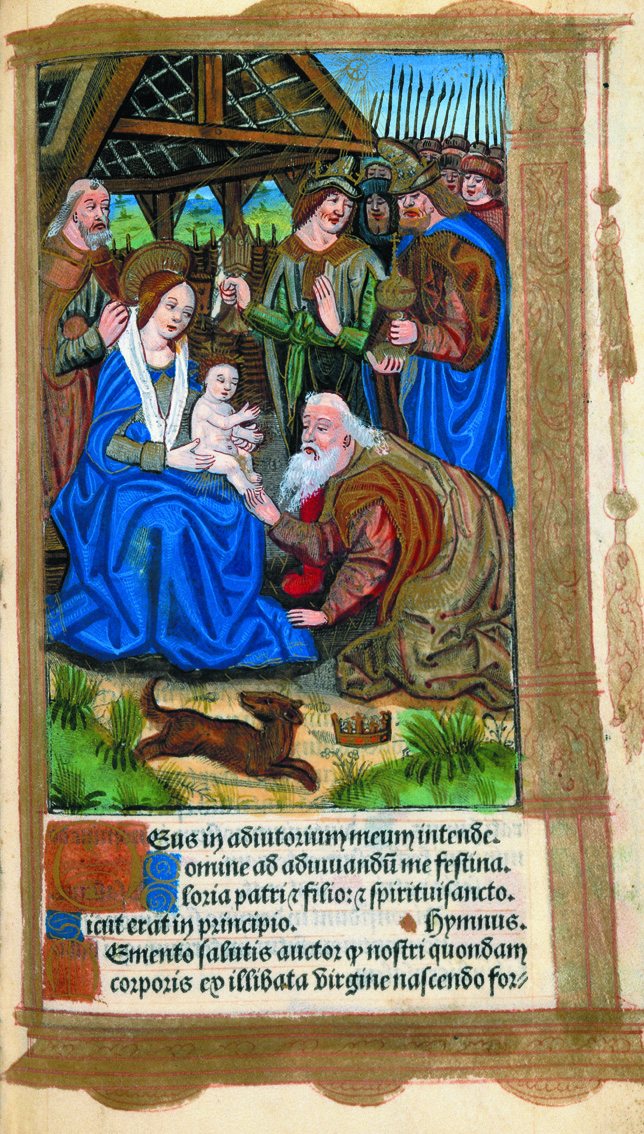 DEus in adiutorium meum intende.
Domine ad adiuuandū me festina.
Gloria patri ⁊ filio: ⁊ spirituisancto.
Sicut erat in principio. Hymnus.
MEmento salutis auctor ꝙ nostri quondam
corporis ex illibata virgine nascendo for⸗